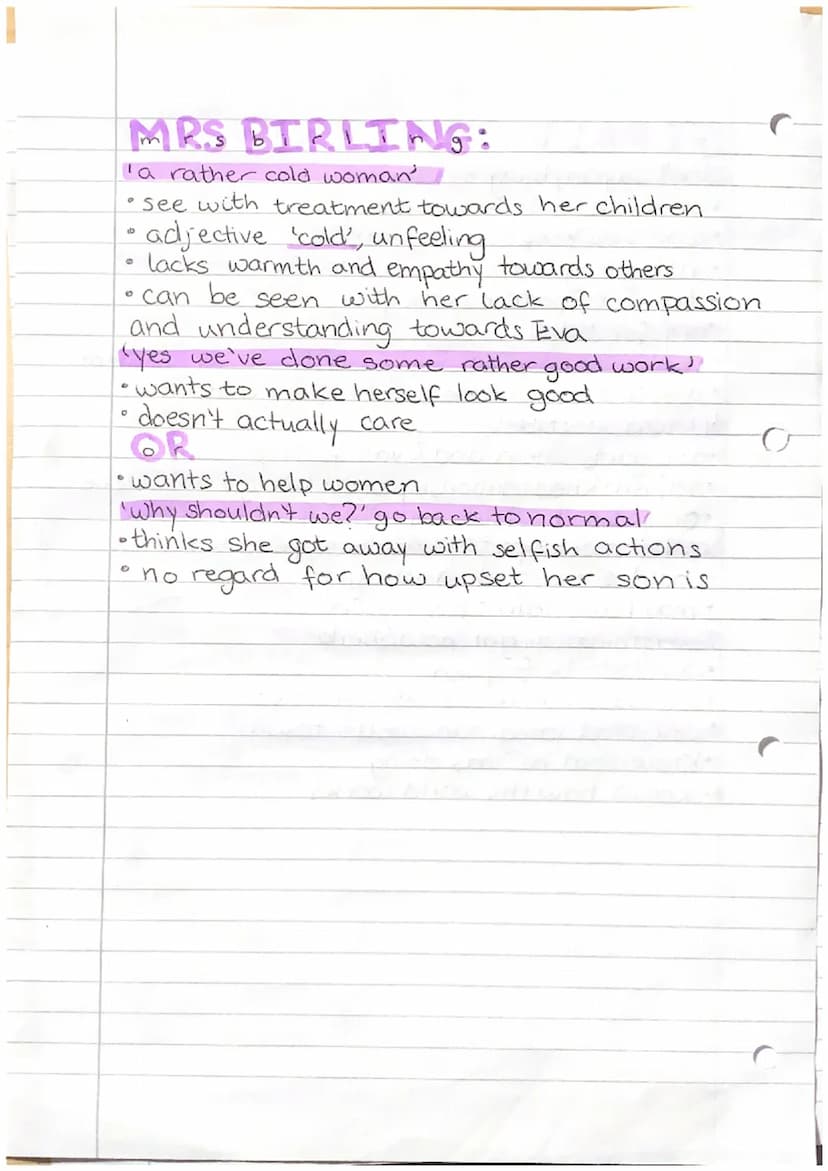 MRS BIRLING:
'a rather cold woman'
• see with treatment towards her children
• adjective 'cold', unfeeling
• lacks warmth and empathy towards others
• can be seen with her lack of compassion
and understanding towards Eva
'yes we've done some rather good work'
• wants to make herself look good
• doesn't actually care
OR
• wants to help women
'why shouldn't we?' go back to normal
• thinks she got away with selfish actions
• no regard for how upset her son is